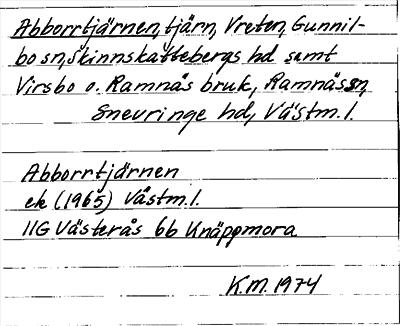 Abborrtjärnen, tjärn, Vreten, Gunnil-
bo sn, Skinnskattebergs hd samt
Virsbo o. Ramnäs bruk, Ramnäs sn,
Snevringe hd, Västm. l.
Abborrtjärnen
ek (1965) Västm. l.
11G Västerås 6b Knäppmora
K.M. 1974